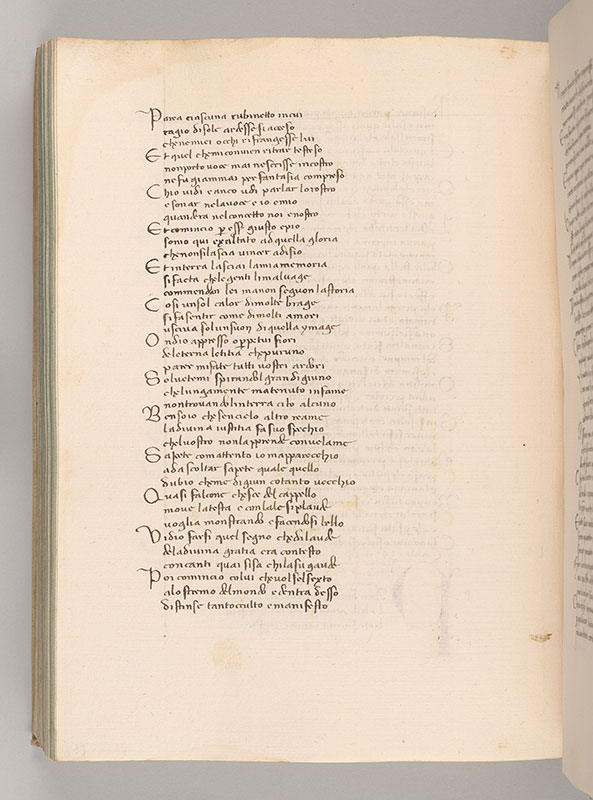 Parea ciascuna rubinetto in cui
ragio di sole ardesse si acceso
che nemiei occhi rifrangesse lui
Et quel che mi convien ritrar testeso
non porto voce mai ne scrisse incostro
ne fu giammai per fantasia compreso
Chio vidi e anco udi parlar lo rostro
e sonar nela voce e io emio
quandera nel concetto noi e nostro
Et comincio p esser giusto epio
sono qui exaltato ad quella gloria
che non si lascia vincer a disio
Et in terra lasciai la mia memoria
si facta che le genti li malvage
commendan lei ma non seguon la storia
Cosi un sol calor di molte brage
si fa sentir come di molti amori
usciva sol un sion di quella ymage
Ondio appresso o perpetui fiori
del eterna letitia che pur uno
parer mi fate tutti vostri ardori
Solvetemi spirando il gran digiuno
che lungamente ma tenuto in fame
non trovandoli in terra cibo alcuno
Ben so io che sen cielo altro reame
la divina iustitia fa suo spechio
chel vostro non lapprende con velame
Sapete com attento io mapparecchio
ad ascoltar sapete quale quello
dubio che me digiun cotanto vecchio
Quasi falcone chesce del cappello
move la testa e con lale si plaude
voglia monstrando e facendosi bello
Vidio farsi quel segno che di laude
dela divina gratia era contesto
con canti quai si sa chi la su gaude
Poi comincio colui che volse il sexto
alo stremo del mondo e dentra desso
distinse tanto occulto e manifesto